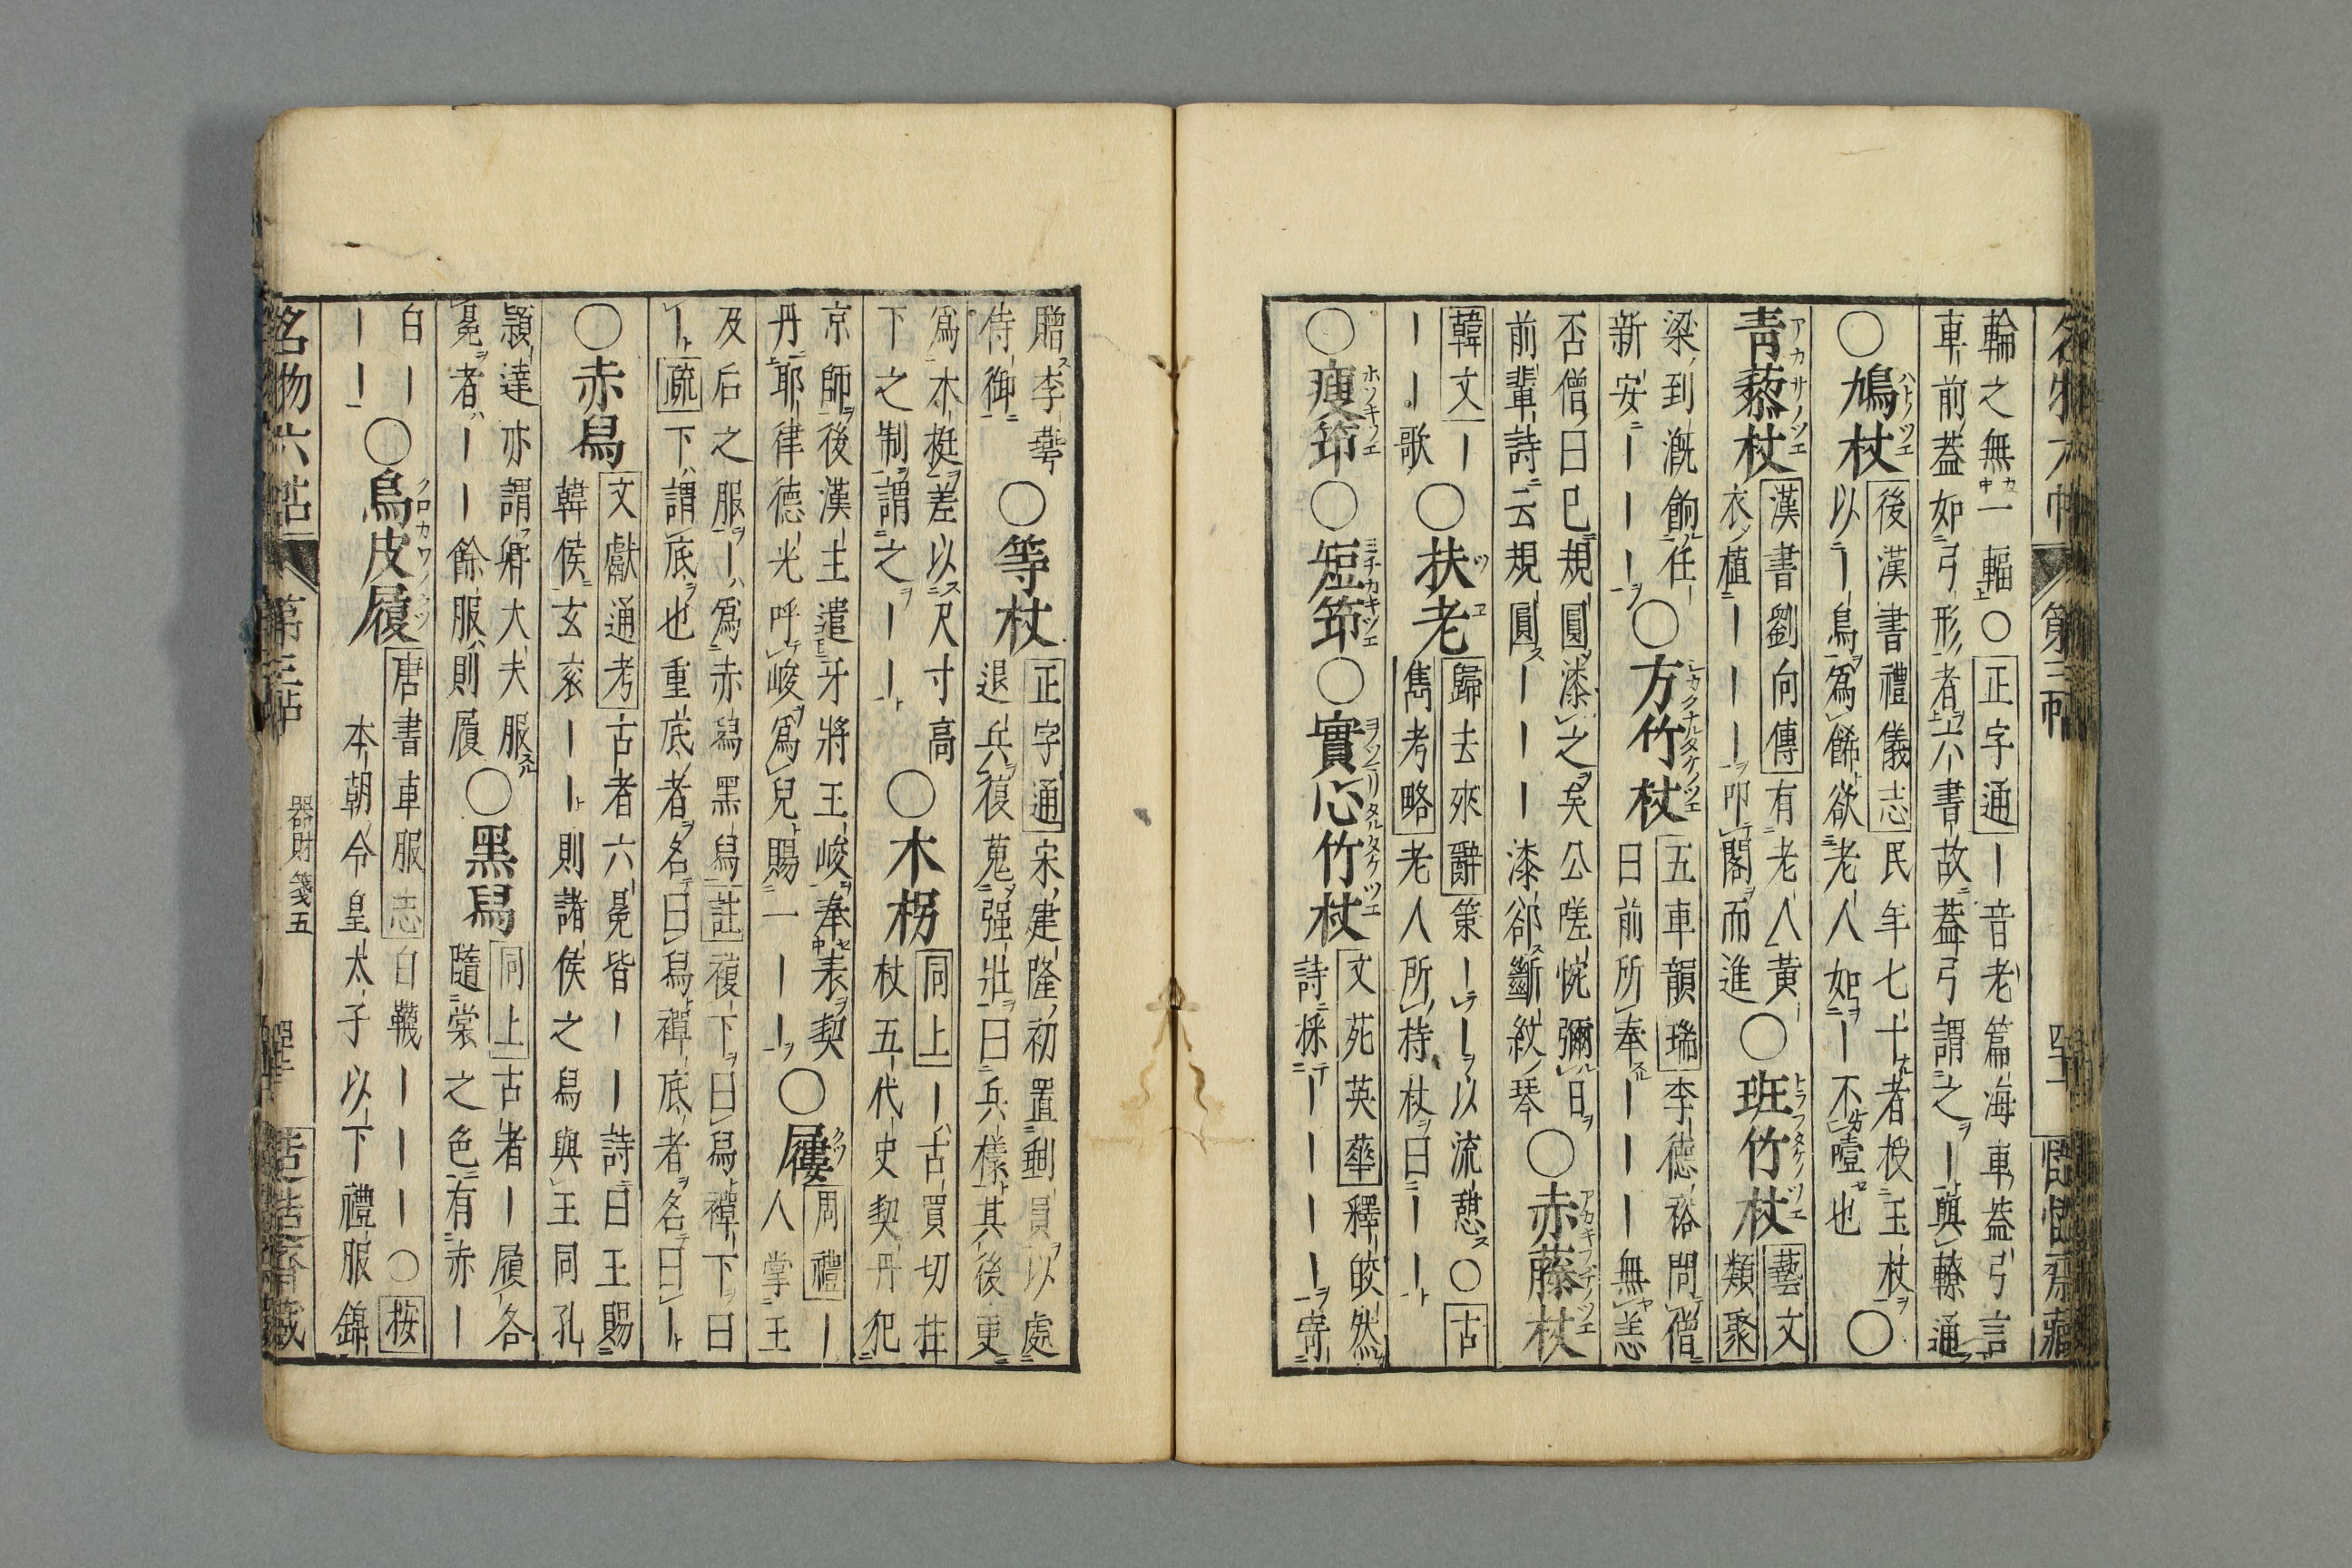 輪之無一輻○正字通｜音老篇海車蓋弓言
車前蓋如弓形者六書故蓋弓謂之｜與轑通
○鳩杖後漢書禮儀志民年七十者授玉杖○
以｜鳥爲餙欲老人如｜不噎也
青藜杖漢書劉向傳有老人黃｜○班竹杖藝文
衣植｜｜｜叩閣而進類聚
梁到漑餉任｜○方竹杖五車韻瑞李德裕問僧
新安｜｜｜日前所奉｜｜｜無恙
否僧曰已規圓漆之矣公嗟惋彌日○赤藤杖
前輩詩云規圓｜｜｜漆卻斷紋琴
韓文｜○扶老歸去來辭策｜｜以流憩○古
｜｜歌雋考略老人所持杖曰｜｜
○瘦筇○短筇○實心竹杖文苑英華釋皎然
詩採｜｜｜｜寄
名物六帖 第三帖
贈李萼○等杖正字通宋建隆初置剩員以處
侍御退兵復蒐强壯曰兵樣其後更
爲木梃差以尺寸高○木枴同上｜古買切拄
下之制謂之｜｜杖五代史契丹犯
京師後漢主遣牙將王峻奉表契○屨周禮｜
丹耶律德光呼峻爲兒賜一｜｜人掌王
及后之服｜爲赤舃黑舃註複下曰舃襌下曰
｜疏下謂底也重底者名曰舃襌底者名曰｜
○赤舃文獻通考古者六冕皆｜｜詩曰王賜
韓侯玄衮｜｜則諸侯之舃與王同孔
潁達亦謂卿大夫服○黑舃同上古者｜履各
冕者｜｜餘服則履隨裳之色有赤｜
白｜○烏皮履唐書車服志白韈｜｜｜○按
｜｜本朝令皇太子以下禮服錦
名物六帖 第三帖 器財箋五